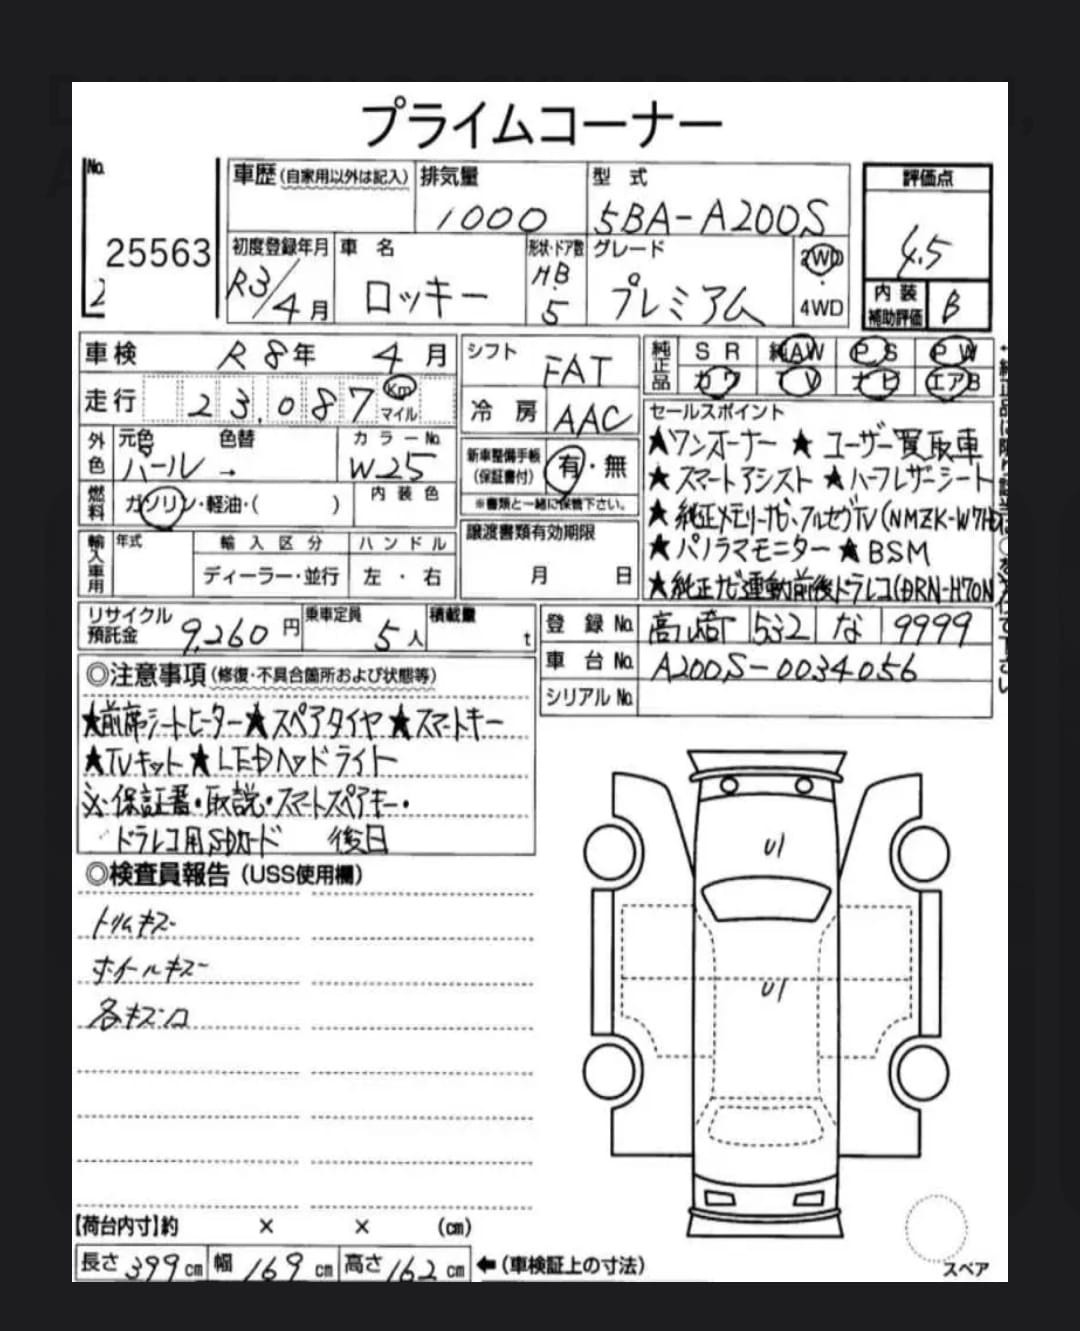 プライムコーナー
No.
25563
2
車歴(自家用以外は記入)
排気量
1000
型 式
5BA-A200S
評価点
4.5
初度登録年月
R3/4月
車 名
ロッキー
形状・ドア数
H.B
5
グレード
プレミアム
2WD
・
4WD
内 装
補助評価
B
車検 R8年 4月
走行 23,087 Km マイル
シフト FAT
冷 房 AAC
純正品
SR 純AW PS PW
カワ TV ナビ エアB
セールスポイント
★ワンオーナー ★ ユーザー買取車
★スマートアシスト ★ハーフレザーシート
★純正メモリーナビ、フルセグTV(NMZK-W71D
★パノラマモニター ★BSM
★純正ナビ連動前後ドラレコ(DRN-H70N
外色
元色 色替
パール →
カラーNo.
W25
燃料
ガソリン・軽油・( )
内装色
新車整備手帳
(保証書付)
有・無
※書類と一緒に保管下さい。
輸入車用
年式
輸入区分
ディーラー・並行
ハンドル
左 ・ 右
譲渡書類有効期限
月 日
リサイクル
預託金
9,260円
乗車定員
5人
積載量
t
登 録 No. 高崎 532 な 9999
車 台 No. A200S-0034056
シリアル No.
◎注意事項(修復・不具合箇所および状態等)
★前席シートヒーター★スペアタイヤ ★スマートキー
★TVキット ★LEDヘッドライト
※保証書・取説・スマートスペアキー・
ドラレコ用SDカード 後日
◎検査員報告(USS使用欄)
トリムキズ
ホイールキズ
各キズ凹
U1
U1
【荷台内寸】約 × × (cm)
長さ 399cm 幅 169cm 高さ 162cm ←(車検証上の寸法)
スペア